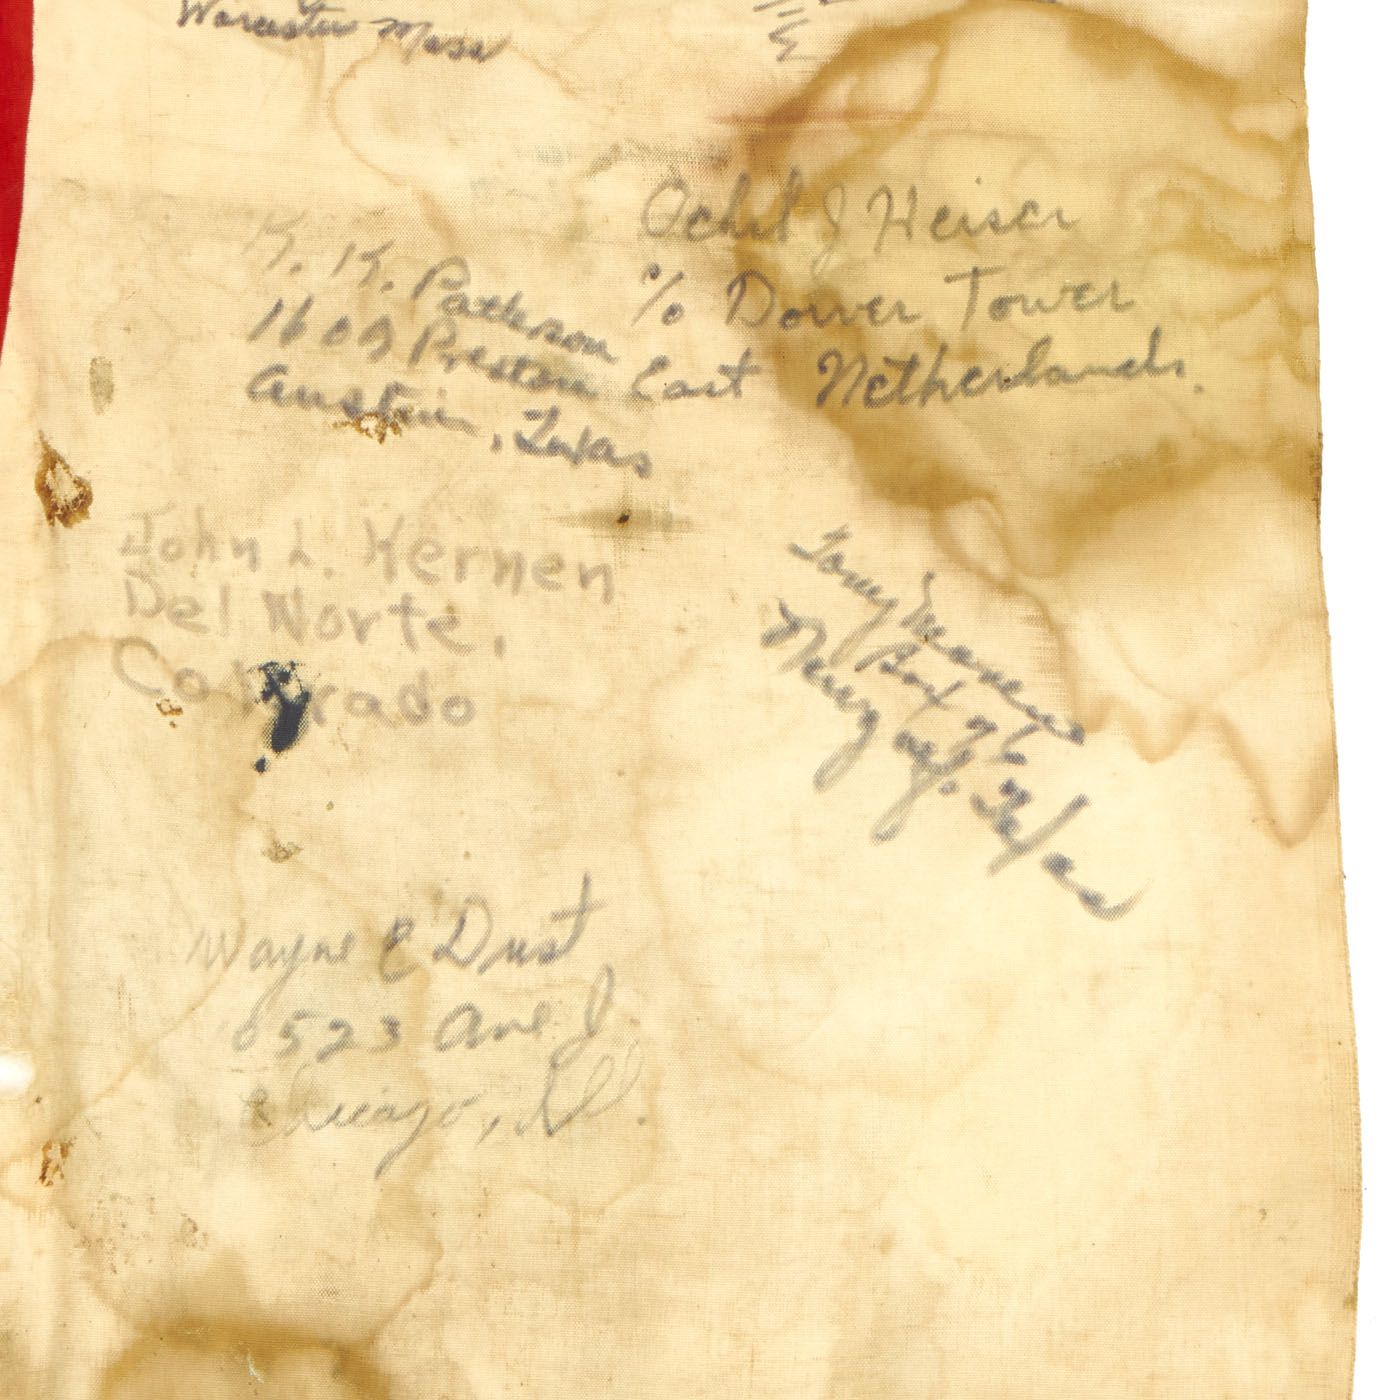 Worcester Mass
K. K. Patterson
1609 Preston
Austin, Texas
J Heiser
% Dower Tower
East Netherlands.
John L. Kernen
Del Norte,
Colorado
Tony
Box 96
Texas
Wayne E Dust
6523 Ave J.
Chicago, Ill.